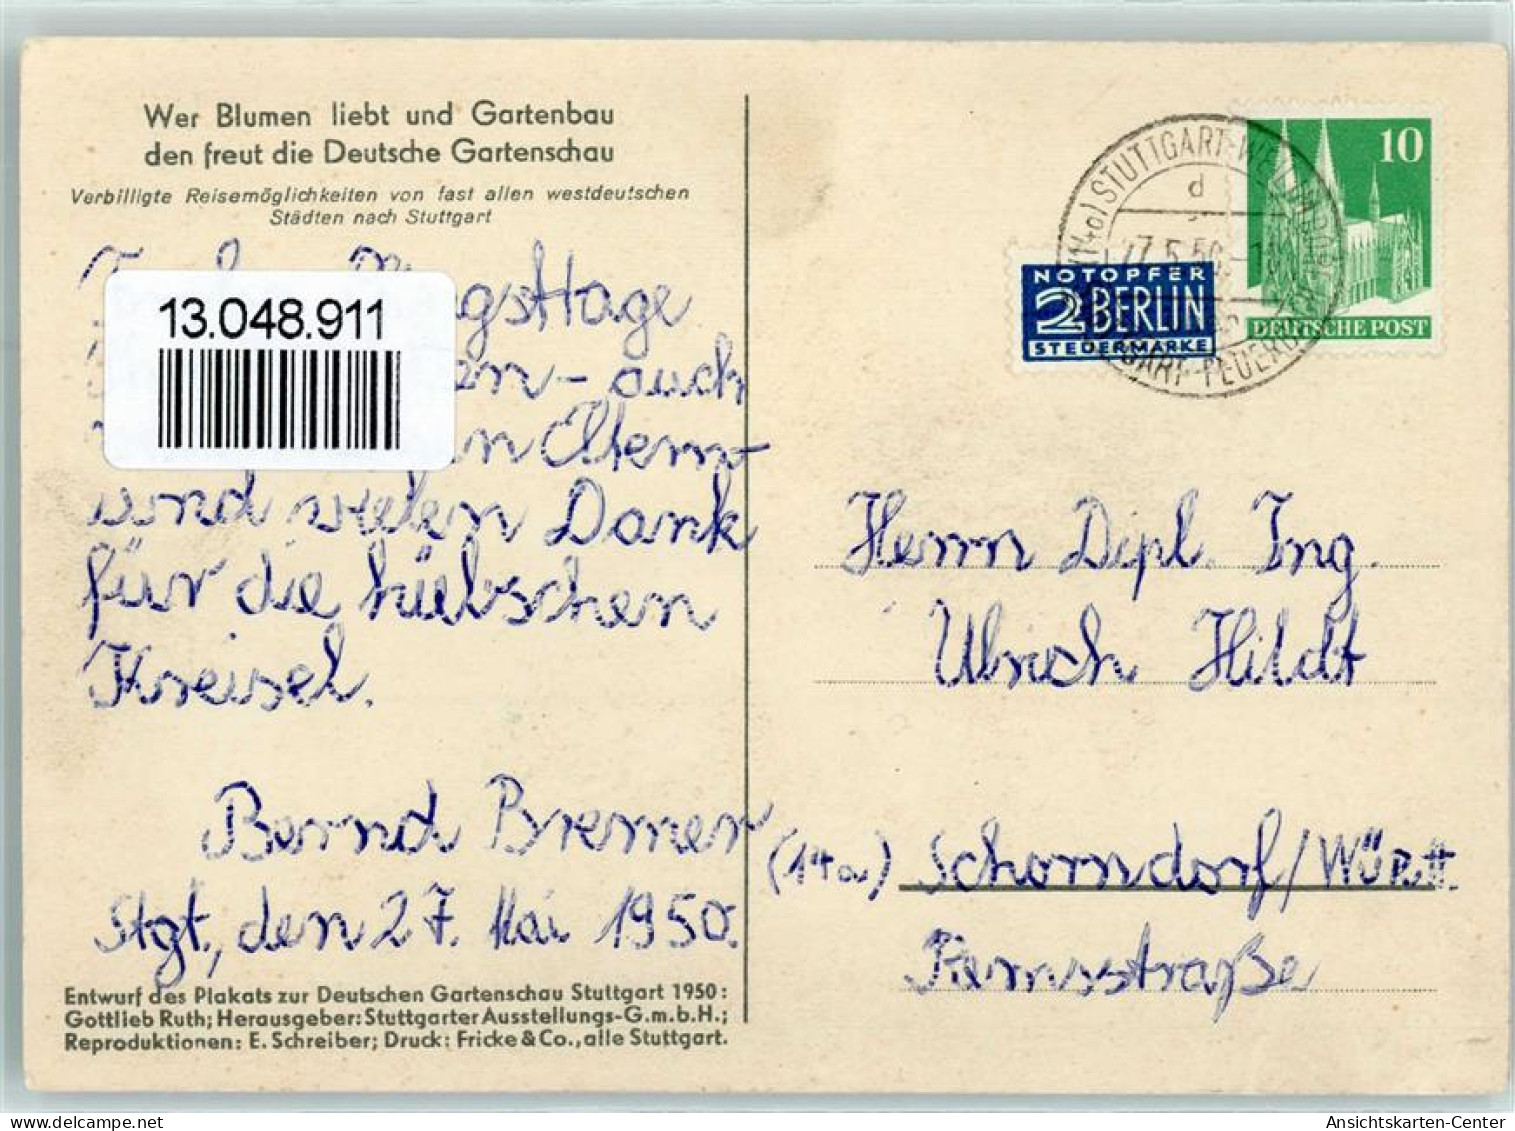 Wer Blumen liebt und Gartenbau
den freut die Deutsche Gartenschau
Verbilligte Reisemöglichkeiten von fast allen westdeutschen
Städten nach Stuttgart
13.048.911
auch
Eltern
und vielen Dank
für die hübschen
Kreisel.
Bernd Bremer
Stgt., den 27. Mai 1950.
Entwurf des Plakats zur Deutschen Gartenschau Stuttgart 1950:
Gottlieb Ruth; Herausgeber: Stuttgarter Ausstellungs-G.m.b.H.;
Reproduktionen: E. Schreiber; Druck: Fricke & Co., alle Stuttgart.
10
DEUTSCHE POST
NOTOPFER
2 BERLIN
STEUERMARKE
(14a) STUTTGART
d
Herrn Dipl. Ing.
Ulrich Hildt
(14a) Schorndorf/Württ.
Remsstraße
Ansichtskarten-Center